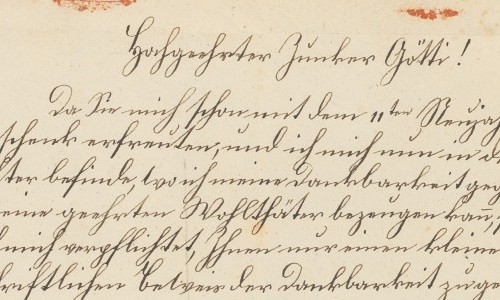 Hochgeehrter Junker Götti!
Da Sie mich schon mit dem 11ten Neujah
schenk erfreuten, und ich mich nun in d
ter befinde, wo ich meine Dankbarkeit geg
eine geehrten Wohlthäter bezeugen kan̄,
mich verpflichtet, Ihnen nur einen kleine
riftlichen Beweis der Dankbarkeit zu ge